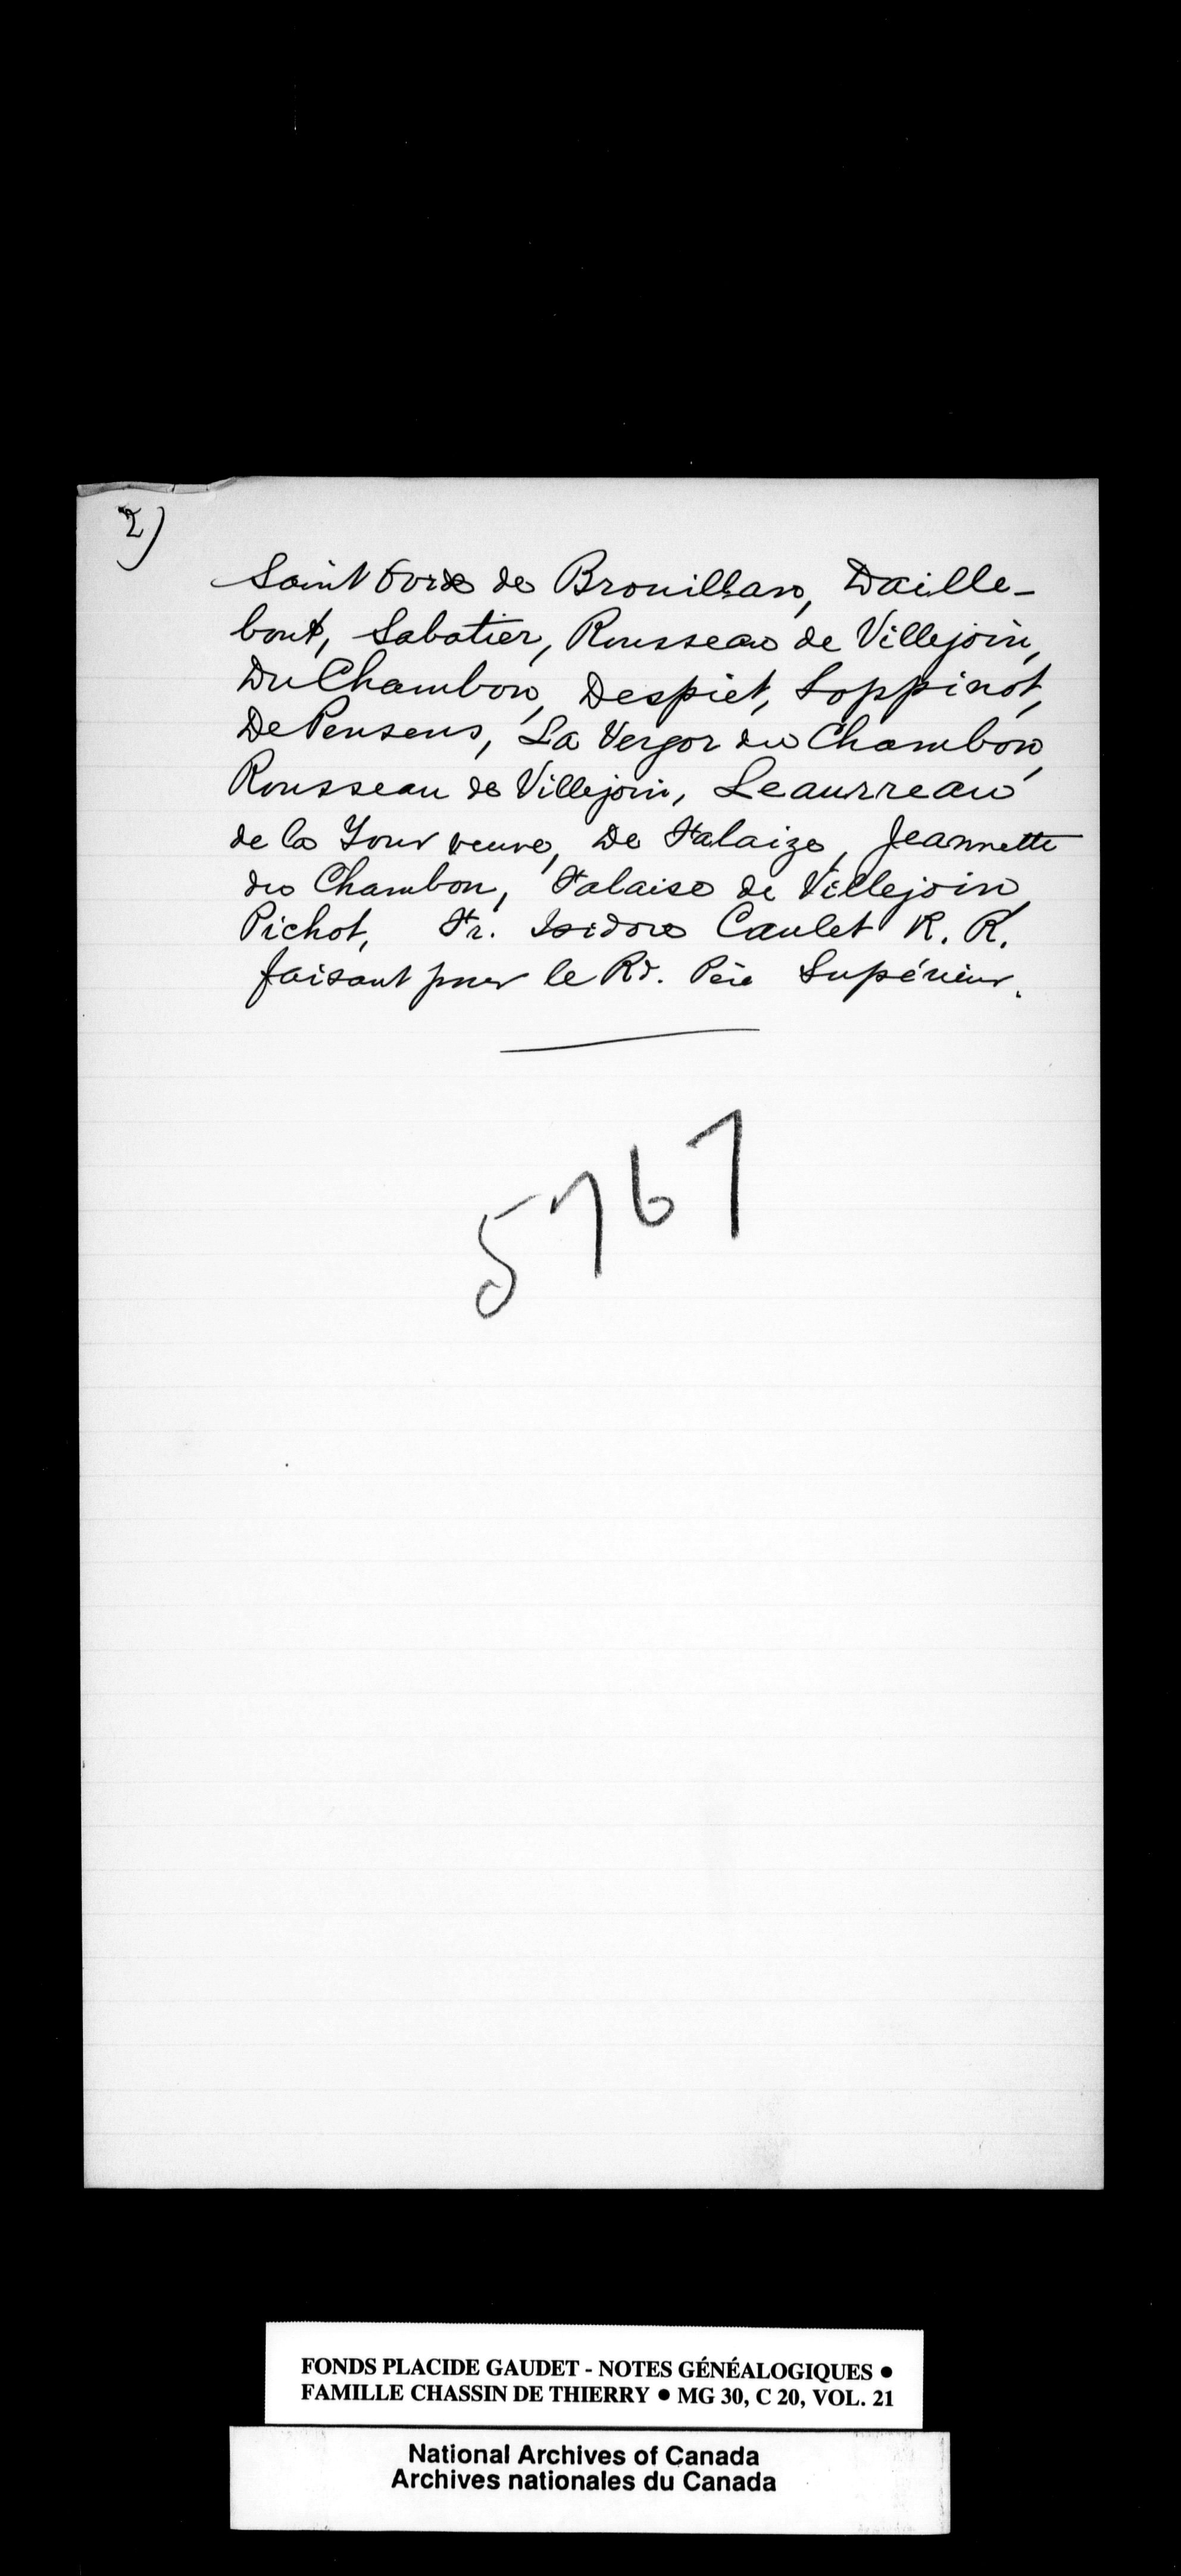 2)
Saint Ovide de Brouillan, Daille-
bout, Sabatier, Rousseau de Villejoin,
DuChambon, Despiet, Loppinot,
DePensens, La Vergor du Chambon,
Rousseau de Villejoin, Leaurreau
de la Tour veuve, De Falaize, Jeannette
du Chambon, Falaise de Villejoin,
Pichot, Fr. Isidore Caulet R. R.
faisant pour le Rd. Père Supérieur.
5767
FONDS PLACIDE GAUDET - NOTES GÉNÉALOGIQUES ●
FAMILLE CHASSIN DE THIERRY ● MG 30, C 20, VOL. 21
National Archives of Canada
Archives nationales du Canada